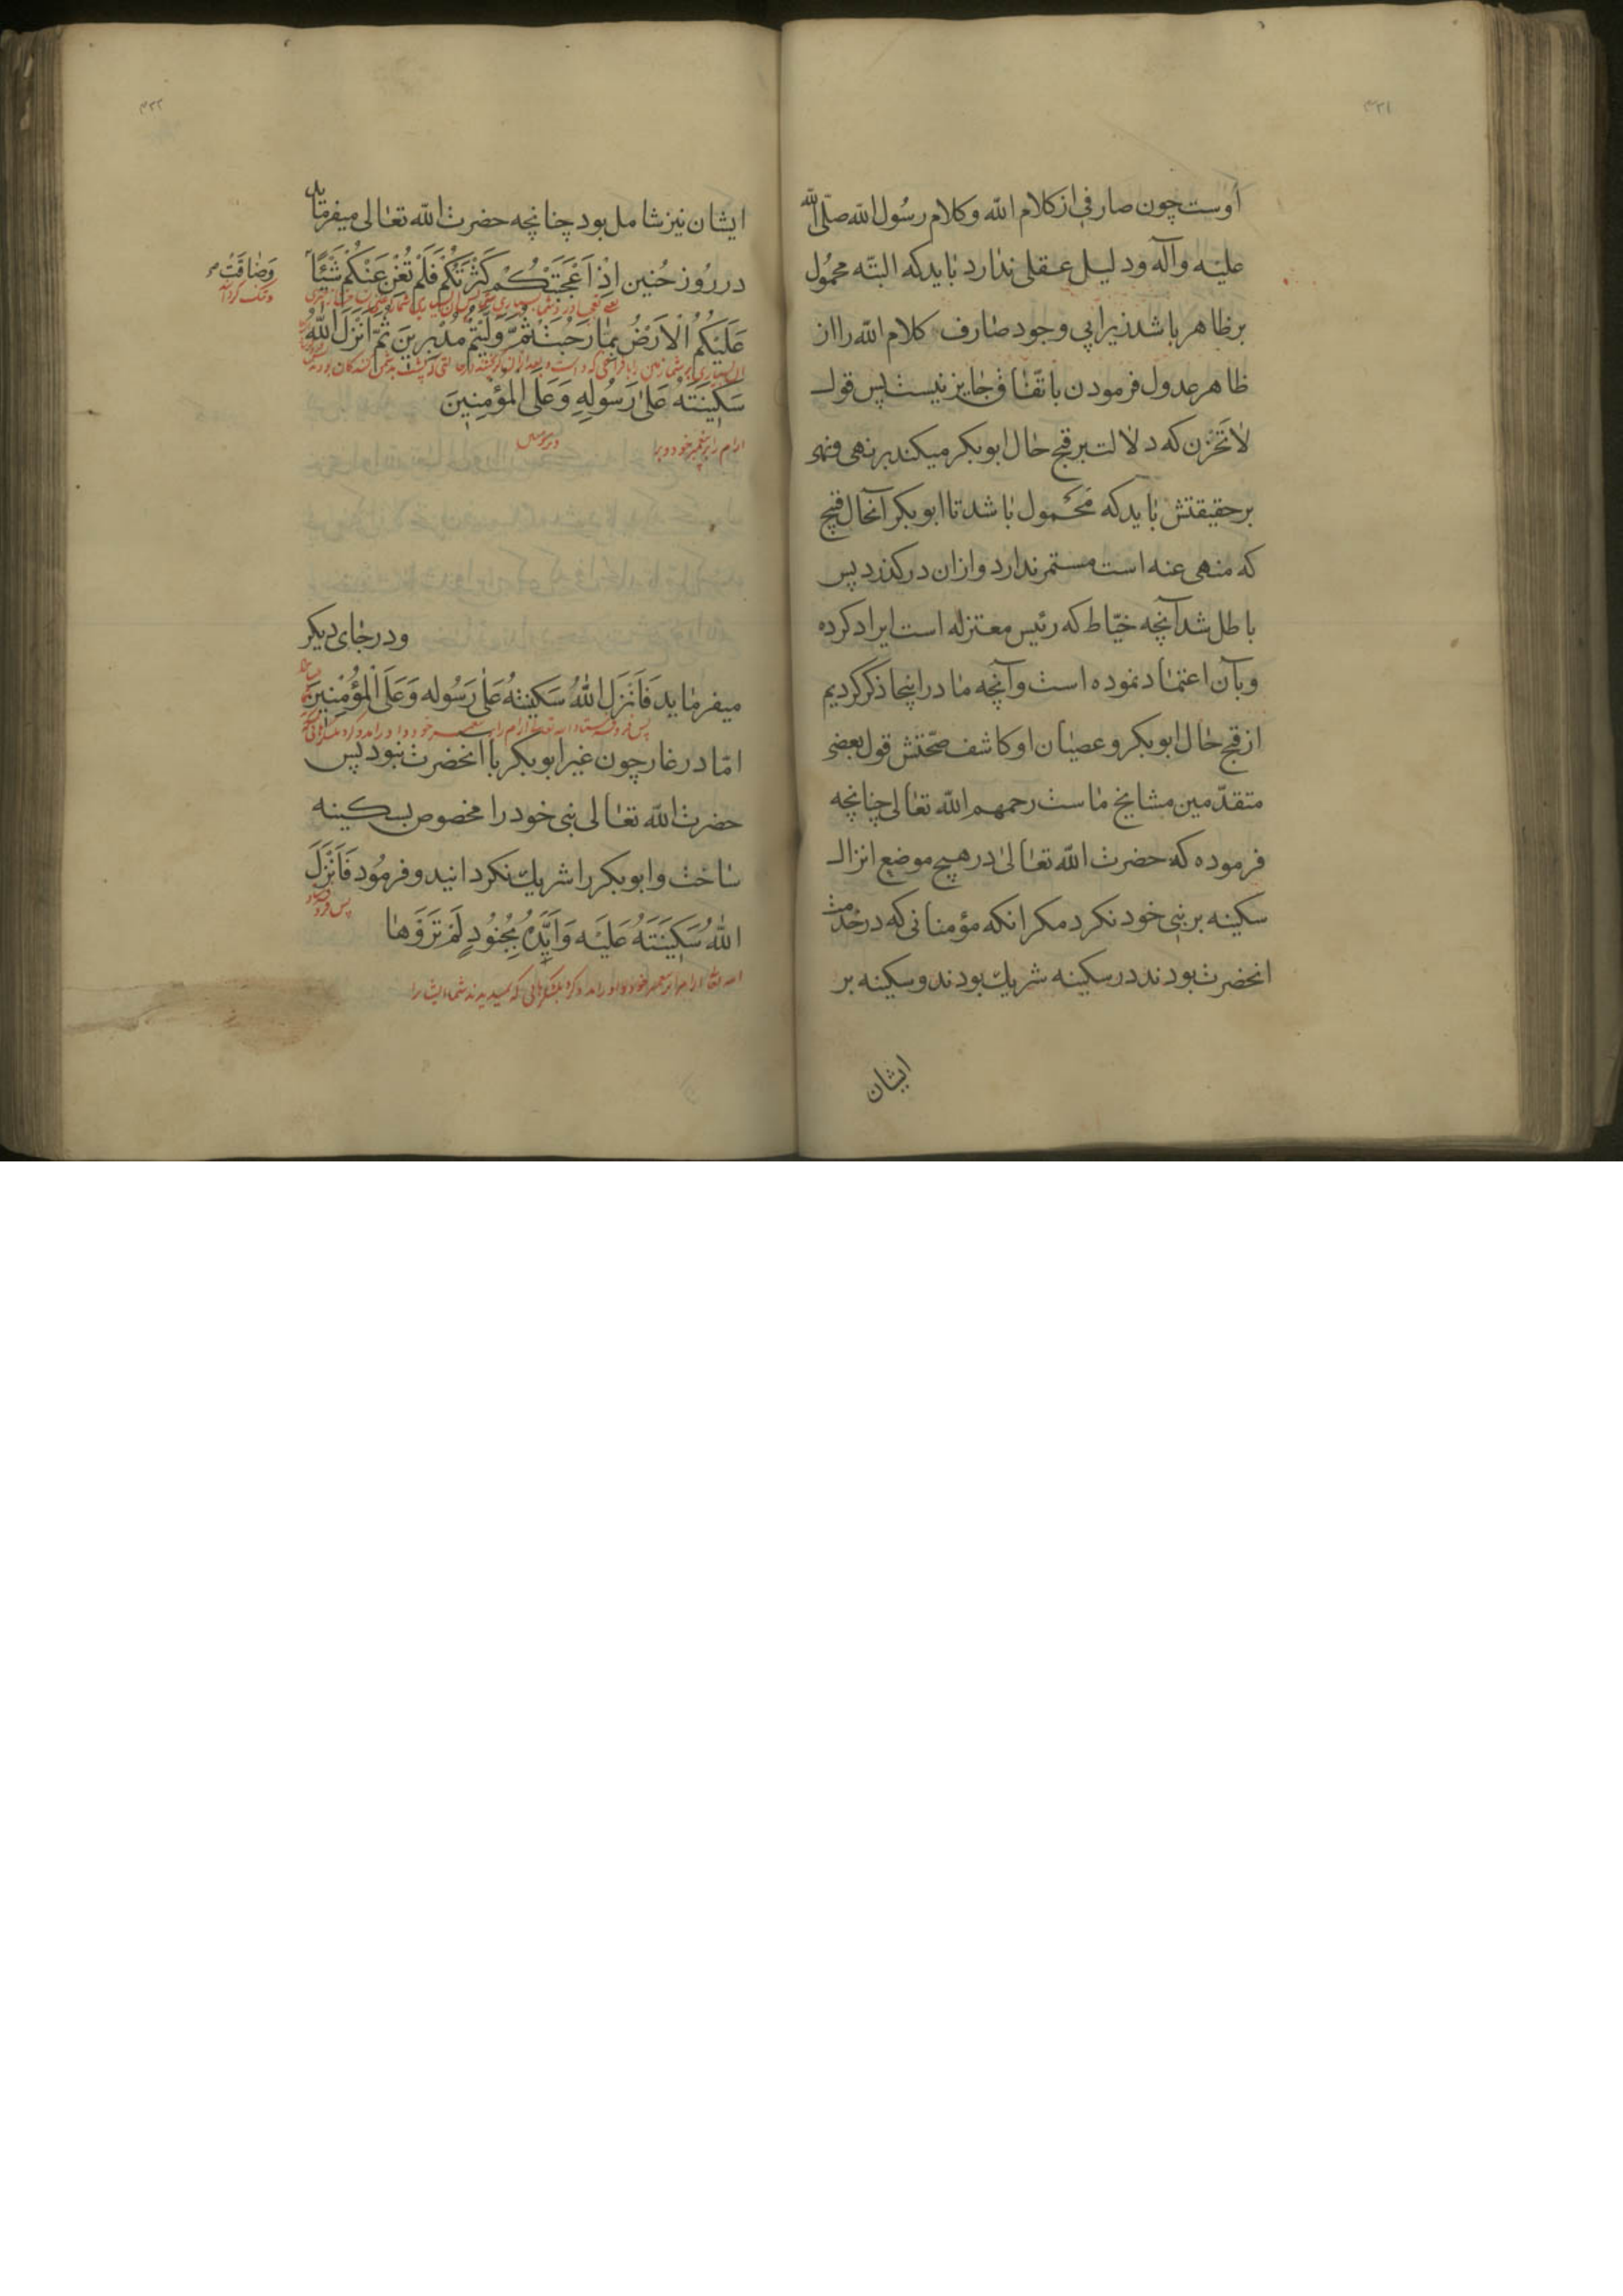 ۴۳۱
اوست چون صارفی از کلام الله وکلام رسول الله صلی الله
علیه وآله ودلیل عقلی ندارد باید که البته محمول
بر ظاهر باشد زیرا بی وجود صارف کلام الله را از
ظاهر عدول فرمودن باتفاق جایز نیست پس قول
لا تحزن که دلالت بر قبح حال ابوبکر میکند بر نهی
بر حقیقتش باید که محمول باشد تا ابوبکر آنحال قبیح
که منهی عنه است مستمر ندارد وازان درکذرد پس
باطل شد آنچه خیّاط که رئیس معتزله است ایراد کرده
وبآن اعتماد نموده است وآنچه ما در اینجا ذکر کردیم
از قبح حال ابوبکر وعصیان او کاشف صحّتش قول بعضی
متقدّمین مشایخ ماست رحمهم الله تعالی چنانچه
فرموده که حضرت الله تعالی در هیچ موضع انزال
سکینه بر نبی خود نکرد مکر انکه مؤمنانی که در خدمت
انحضرت بودند در سکینه شریك بودند وسکینه بر
ایشان
۴۳۲
ایشان نیز شامل بود چنانچه حضرت الله تعالی میفرماید
در روز حُنین اِذْ اَعْجَبَتْكُمْ كَثْرَتُكُمْ فَلَمْ تُغْنِ عَنْكُمْ شَيْئًا
وَضاقَتْ
وتنک کردانید
عَلَيْكُمُ الْاَرْضُ بِمٰا رَحُبَتْ ثُمَّ وَلَّيْتُمْ مُدْبِرينَ ثُمَّ اَنْزَلَ اللّٰهُ
سَكينَتَهُ عَلىٰ رَسُولِهِ وَعَلَى الْمُؤْمِنينَ
ارام را بر پیغمبر خود وبر
ودر جای دیکر
میفرماید فَاَنْزَلَ اللّٰهُ سَكينَتَهُ عَلىٰ رَسُولِهِ وَعَلَى الْمُؤْمِنينَ
امّا در غار چون غیر ابوبکر با انحضرت نبود پس
حضرت الله تعالی نبی خود را مخصوص بسکینه
ساخت وابوبکر را شریك نکردانید وفرمود فَاَنْزَلَ
اللّٰهُ سَكينَتَهُ عَلَيْهِ وَاَيَّدَهُ بِجُنُودٍ لَمْ تَرَوْهٰا